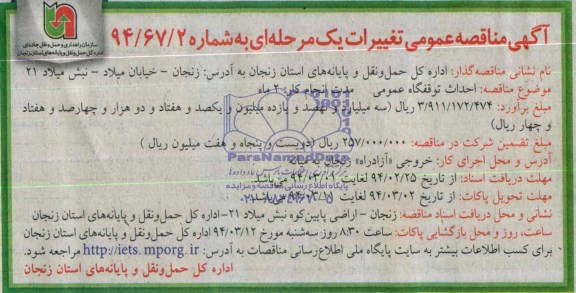 سازمان راهداری و حمل و نقل جاده‌ای
اداره کل حمل و نقل و پایانه‌های استان زنجان
آگهی مناقصه عمومی تغییرات یک مرحله‌ای به شماره ۹۴/۶۷/۲
نام نشانی مناقصه‌گذار: اداره کل حمل‌ونقل و پایانه‌های استان زنجان به آدرس: زنجان - خیابان میلاد - نبش میلاد ۲۱
موضوع مناقصه: احداث توقفگاه عمومی مدت انجام کار: ۲۰ ماه
مبلغ برآورد: ۳/۹۱۱/۱۷۲/۴۷۴ ریال (سه میلیارد و نهصد و یازده میلیون و یکصد و هفتاد و دو هزار و چهارصد و هفتاد
و چهار ریال)
مبلغ تضمین شرکت در مناقصه: ۲۵۷/۰۰۰/۰۰۰ ریال (دویست و پنجاه و هفت میلیون ریال)
آدرس و محل اجرای کار: خروجی «آزادراه» زنجان به میانه
مهلت دریافت اسناد: از تاریخ ۹۴/۰۲/۲۵ لغایت ۹۴/۰۳/۰۱ می‌باشد.
مهلت تحویل پاکات: از تاریخ ۹۴/۰۳/۰۲ لغایت
نشانی و محل دریافت اسناد مناقصه: زنجان - اراضی پایین‌کوه نبش میلاد ۲۱-اداره کل حمل‌ونقل و پایانه‌های استان زنجان
ساعت، روز و محل بازگشایی پاکات: ساعت ۸:۳۰ روز سه‌شنبه مورخ ۹۴/۰۳/۱۲ اداره کل حمل‌ونقل و پایانه‌های استان زنجان
برای کسب اطلاعات بیشتر به سایت پایگاه ملی اطلاع‌رسانی مناقصات به آدرس: http://iets.mporg.ir مراجعه شود.
اداره کل حمل‌ونقل و پایانه‌های استان زنجان
ParsNamadData
پایگاه اطلاع رسانی مناقصه و مزایده